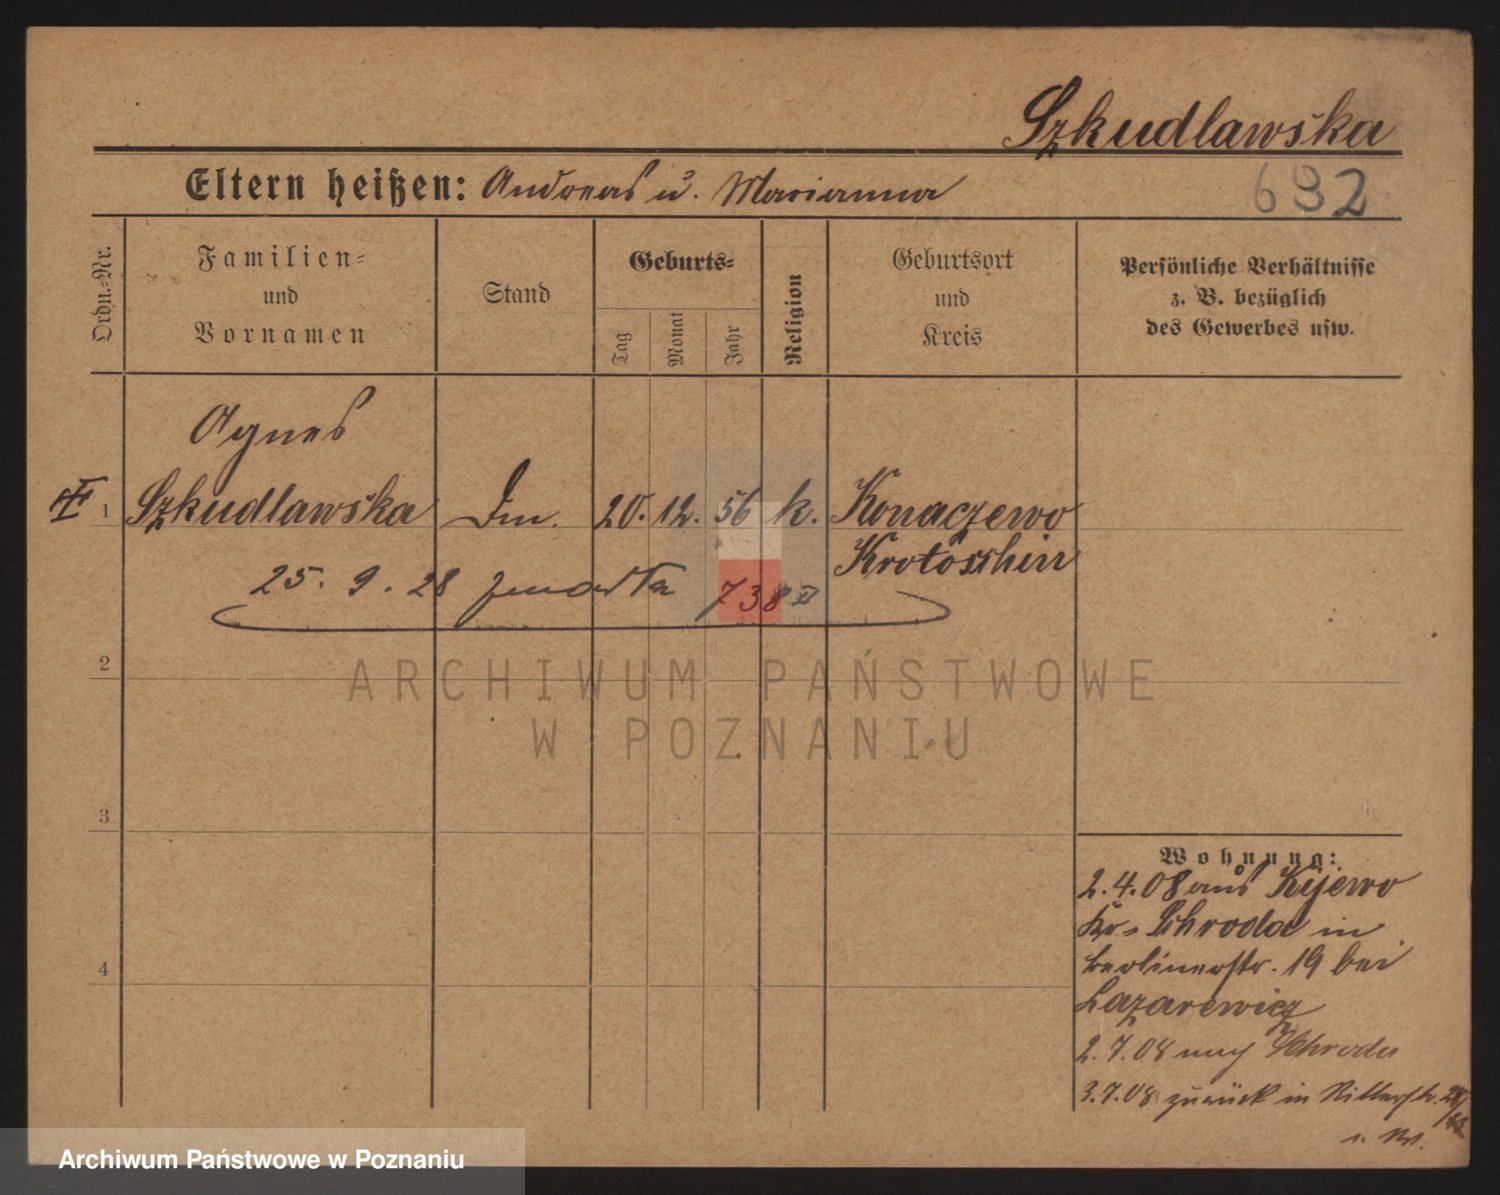 Szkudlawska
Eltern heißen: Andreas u. Marianna
632
Ordn.-Nr.
Familien-
und
Vornamen
Stand
Geburts-
Tag
Monat
Jahr
Religion
Geburtsort
und
Kreis
Persönliche Verhältnisse
z. B. bezüglich
des Gewerbes usw.
Agnes
1 Szkudlawska 20. 12. 56 k. Konaczewo
Krotoschin
25. 9. 28 zmarła 738 XI
2
ARCHIWUM PAŃSTWOWE
W POZNANIU
3
4
Wohnung:
2.4.08 aus Kijewo
Kr. Schroda in
Berlinerstr. 19 bei
Lazarewicz
2.7.08 nach Schroda
3.7.08 zurück in Ritterstr.
Archiwum Państwowe w Poznaniu